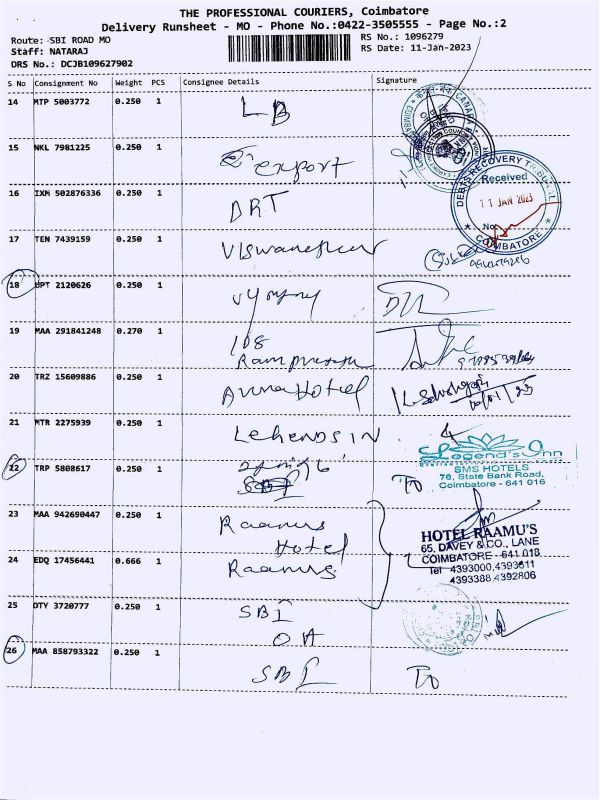 THE PROFESSIONAL COURIERS, Coimbatore
Delivery Runsheet - MO - Phone No.:0422-3505555 - Page No.:2
Route: SBI ROAD MO RS No.: 1096279
Staff: NATARAJ RS Date: 11-Jan-2023
DRS No.: DCJB109627902
S No Consignment No Weight PCS Consignee Details Signature
14 MTP 5003772 0.250 1 LB
15 NKL 7981225 0.250 1 export
16 IXM 502876336 0.250 1 DRT
DEBTS RECOVERY TRIBUNAL
Received
11 JAN 2023
No
COIMBATORE
17 TEN 7439159 0.250 1
18 UPT 2120626 0.250 1
19 MAA 291841248 0.270 1 108
20 TRZ 15609886 0.250 1 Anna Hotel
21 MTR 2275939 0.250 1 Lehends IN
Legend's Inn
SMS HOTELS
76, State Bank Road,
Coimbatore - 641 018
22 TRP 5808617 0.250 1
23 MAA 942690447 0.250 1 Raamus
Hotel
HOTEL RAAMU'S
65, DAVEY & CO., LANE
COIMBATORE - 641 018
Tel 4393000,4393611
4393388,4392806
24 EDQ 17456441 0.666 1 Raamus
25 DTY 3720777 0.250 1 SBI
OA
26 MAA 858793322 0.250 1 SBI